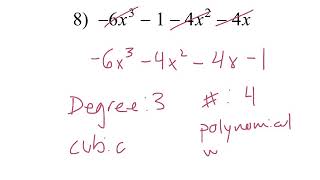 8) -6x³ - 1 - 4x² - 4x
-6x³ - 4x² - 4x - 1
Degree: 3 #: 4
cubic polynomial
w